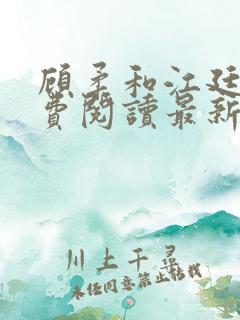 顾柔和江廷
费閱讀最新
川上千尋
未经同意禁止转载